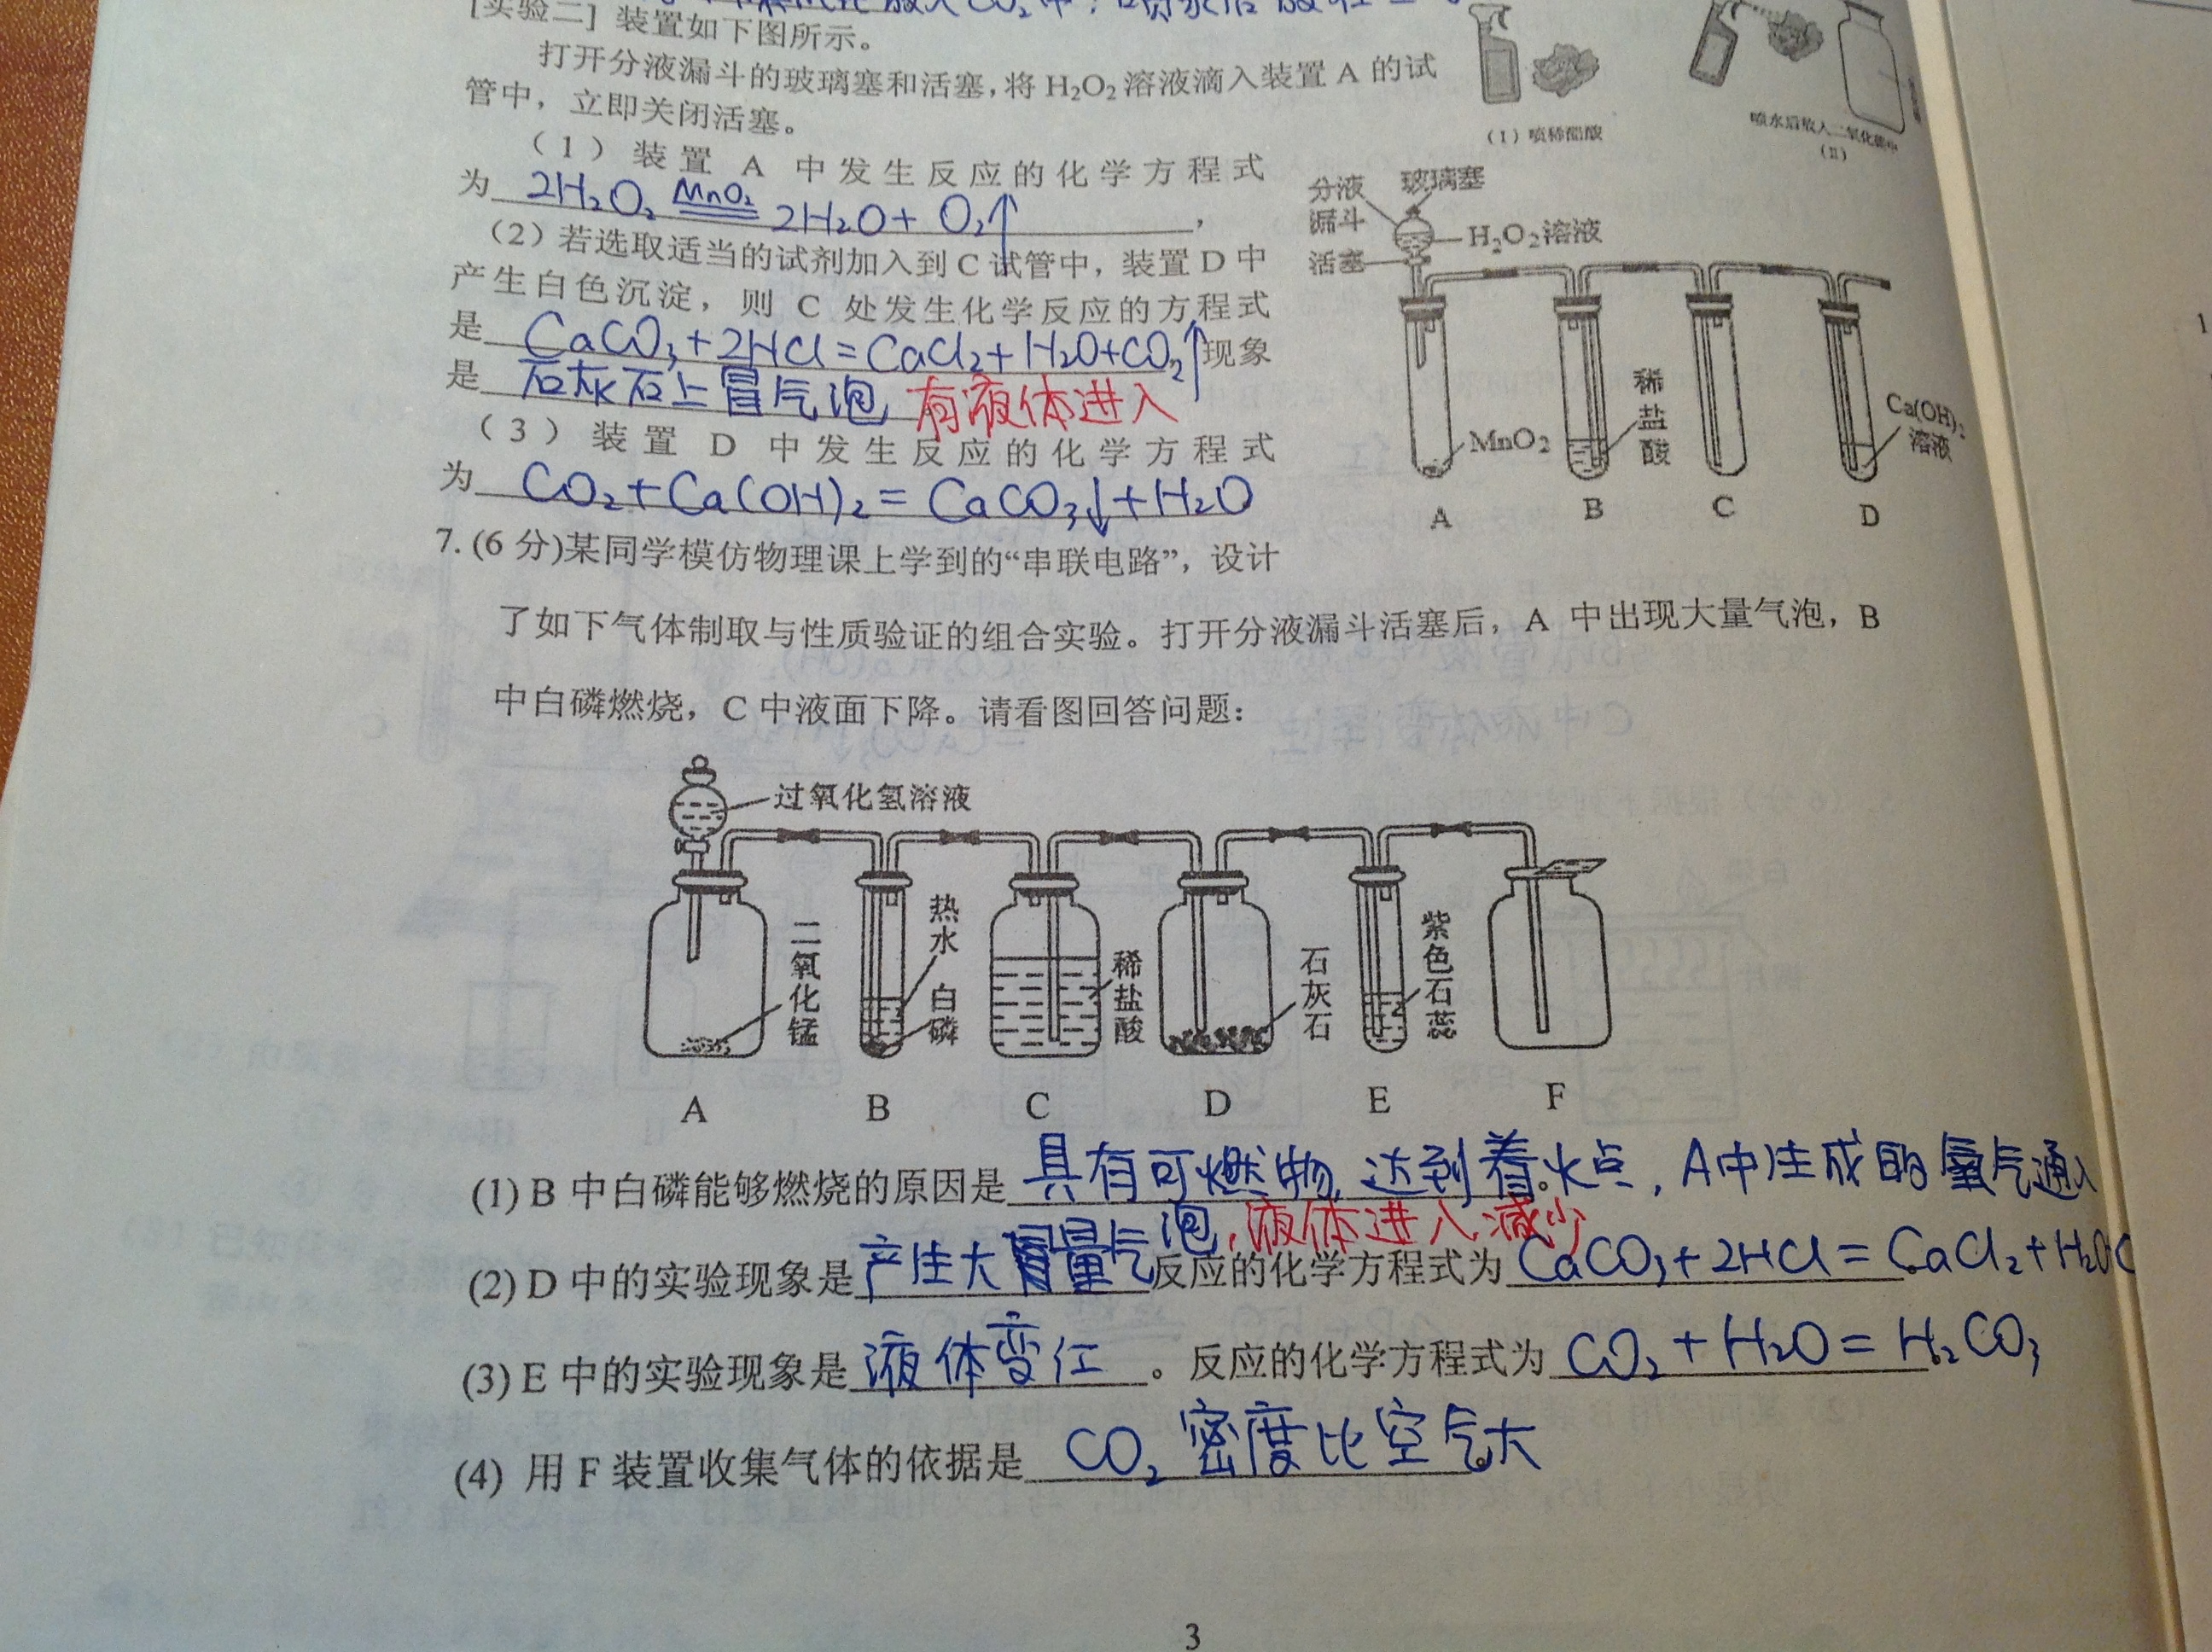 [实验二] 装置如下图所示。
打开分液漏斗的玻璃塞和活塞,将 H₂O₂ 溶液滴入装置 A 的试
管中，立即关闭活塞。
（1）装置 A 中发生反应的化学方程式
为 2H₂O₂ MnO₂ ═ 2H₂O + O₂↑ ，
（2）若选取适当的试剂加入到 C 试管中，装置 D 中
产生白色沉淀，则 C 处发生化学反应的方程式
是 CaCO₃+2HCl=CaCl₂+H₂O+CO₂↑ 现象
是 石灰石上冒气泡 有液体进入
（3）装置 D 中发生反应的化学方程式
为 CO₂+Ca(OH)₂=CaCO₃↓+H₂O
（I）喷稀醋酸
喷水后放入二氧化碳中
（II）
分液漏斗
玻璃塞
H₂O₂溶液
活塞
MnO₂
稀盐酸
Ca(OH)₂溶液
A B C D
7. (6 分)某同学模仿物理课上学到的“串联电路”，设计
了如下气体制取与性质验证的组合实验。打开分液漏斗活塞后，A 中出现大量气泡，B
中白磷燃烧，C 中液面下降。请看图回答问题：
过氧化氢溶液
二氧化锰
热水
白磷
稀盐酸
石灰石
紫色石蕊
A B C D E F
(1) B 中白磷能够燃烧的原因是 具有可燃物,达到着火点，A中生成的氧气通入 。
泡，液体进入,减少
(2) D 中的实验现象是 产生大量气 反应的化学方程式为 CaCO₃+2HCl=CaCl₂+H₂O 。
(3) E 中的实验现象是 液体变红 。反应的化学方程式为 CO₂+H₂O=H₂CO₃ 。
(4) 用 F 装置收集气体的依据是 CO₂密度比空气大 。
3